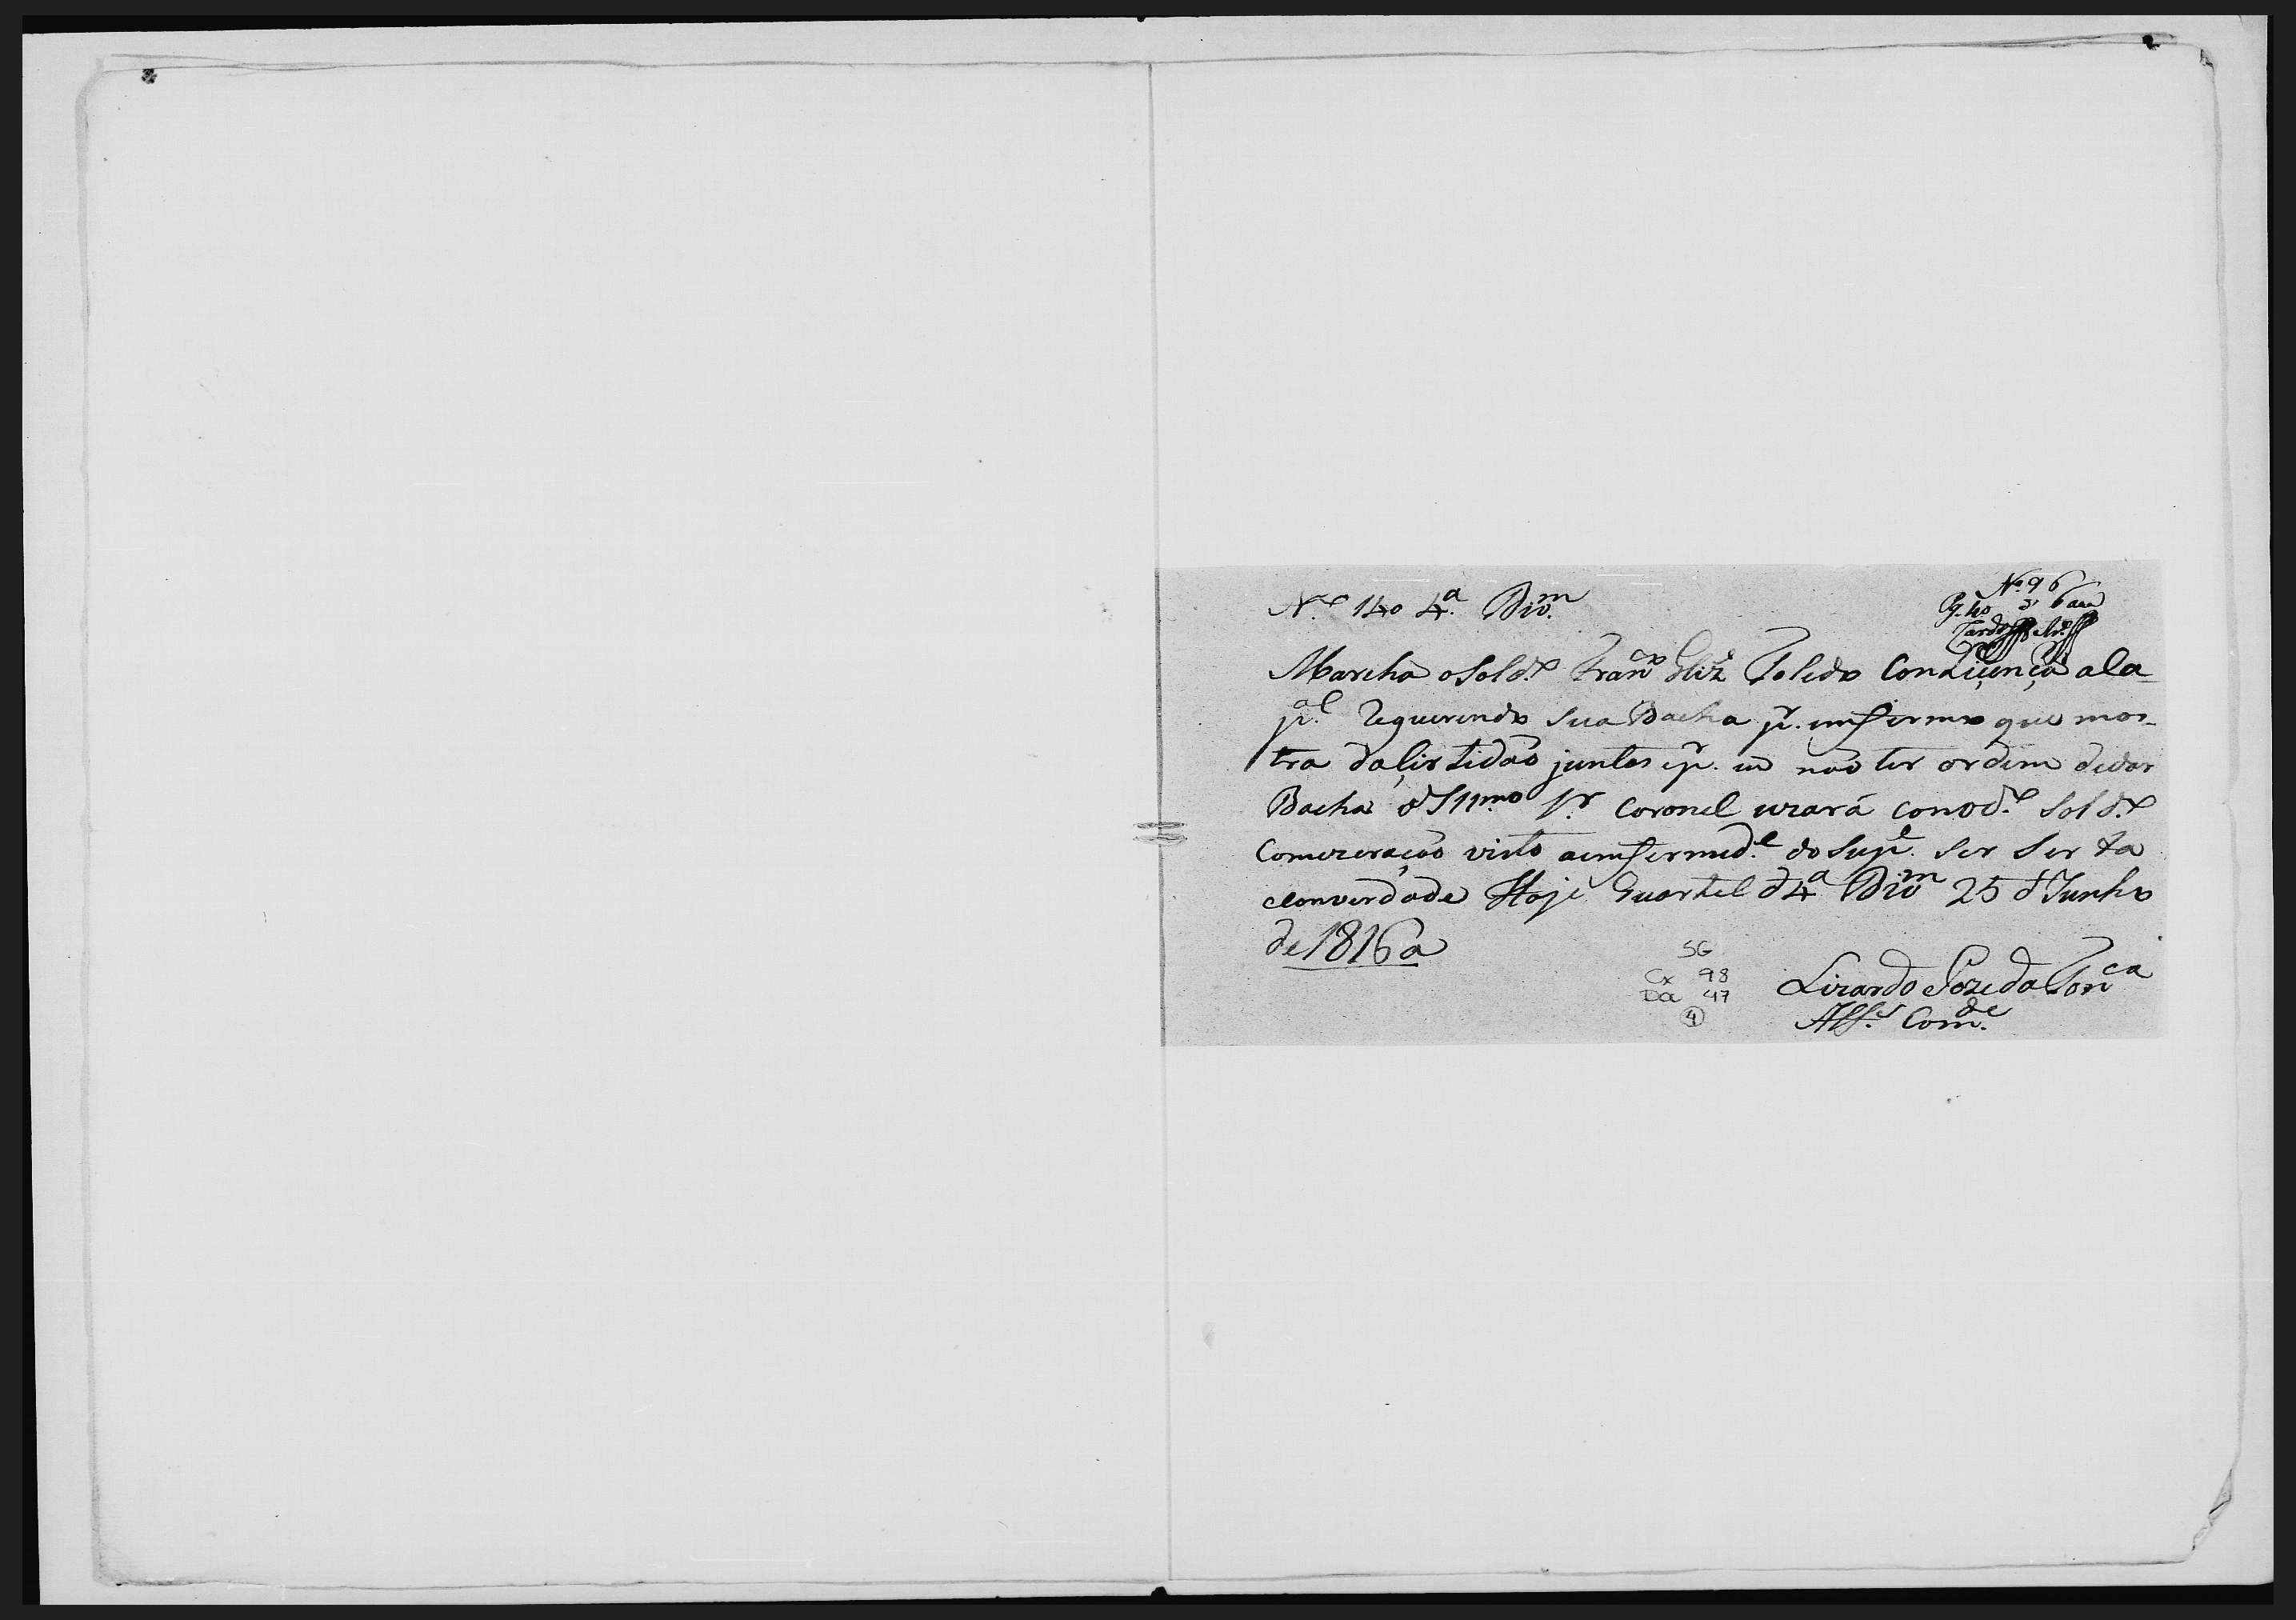 N.º 140 4.ª Divm.
Nº 96
Pg. 40
Marcha o Sold.º Franco Glīz Toledo Com Liçença a Ca
p.al Requerendo Sua Bacha p.r emfermo que mos
tra da Çirtidaõ juntas e p.r eu naõ ter ordem de dar
Bacha o Illmo Sr. Coronel uzará com o d.º Sold.º
Comizeraçaõ visto a emfermid.e do Sup.e Ser Serta
com verdade Hoje Quartel d 4ª Divm 25 d Junho
de 1816 a
SG
Cx 98
Da 47
4
Lizardo Joze da Fonca
Alf.s Comde.